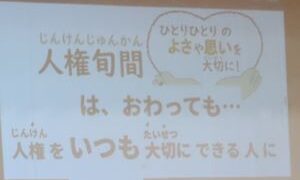 じんけんじゅんかん
人権旬間
ひとりひとりの
よさや思いを
大切に!
は、おわっても…
じんけん たいせつ
人権をいつも大切にできる人に